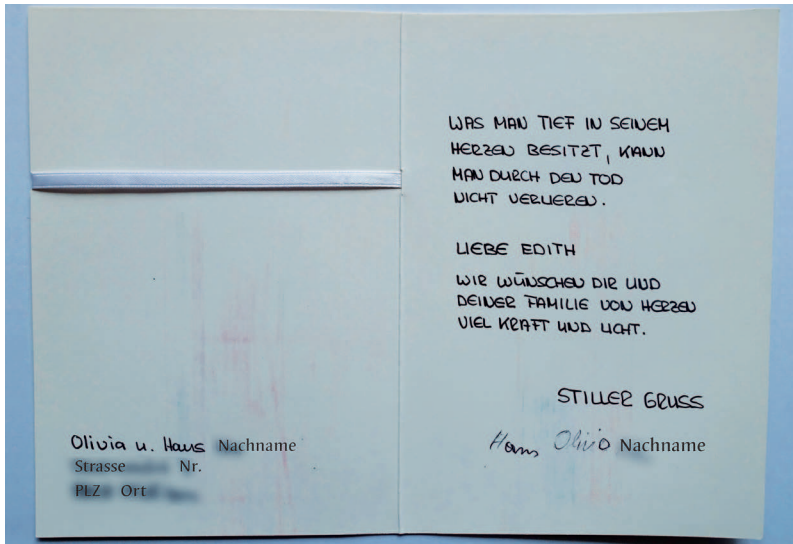 WAS MAN TIEF IN SEINEM
HERZEN BESITZT, KANN
MAN DURCH DEN TOD
NICHT VERLIEREN.
LIEBE EDITH
WIR WÜNSCHEN DIR UND
DEINER FAMILIE VON HERZEN
VIEL KRAFT UND LICHT.
STILLER GRUSS
Hans Olivia Nachname
Olivia u. Hans Nachname
Strasse Nr.
PLZ Ort